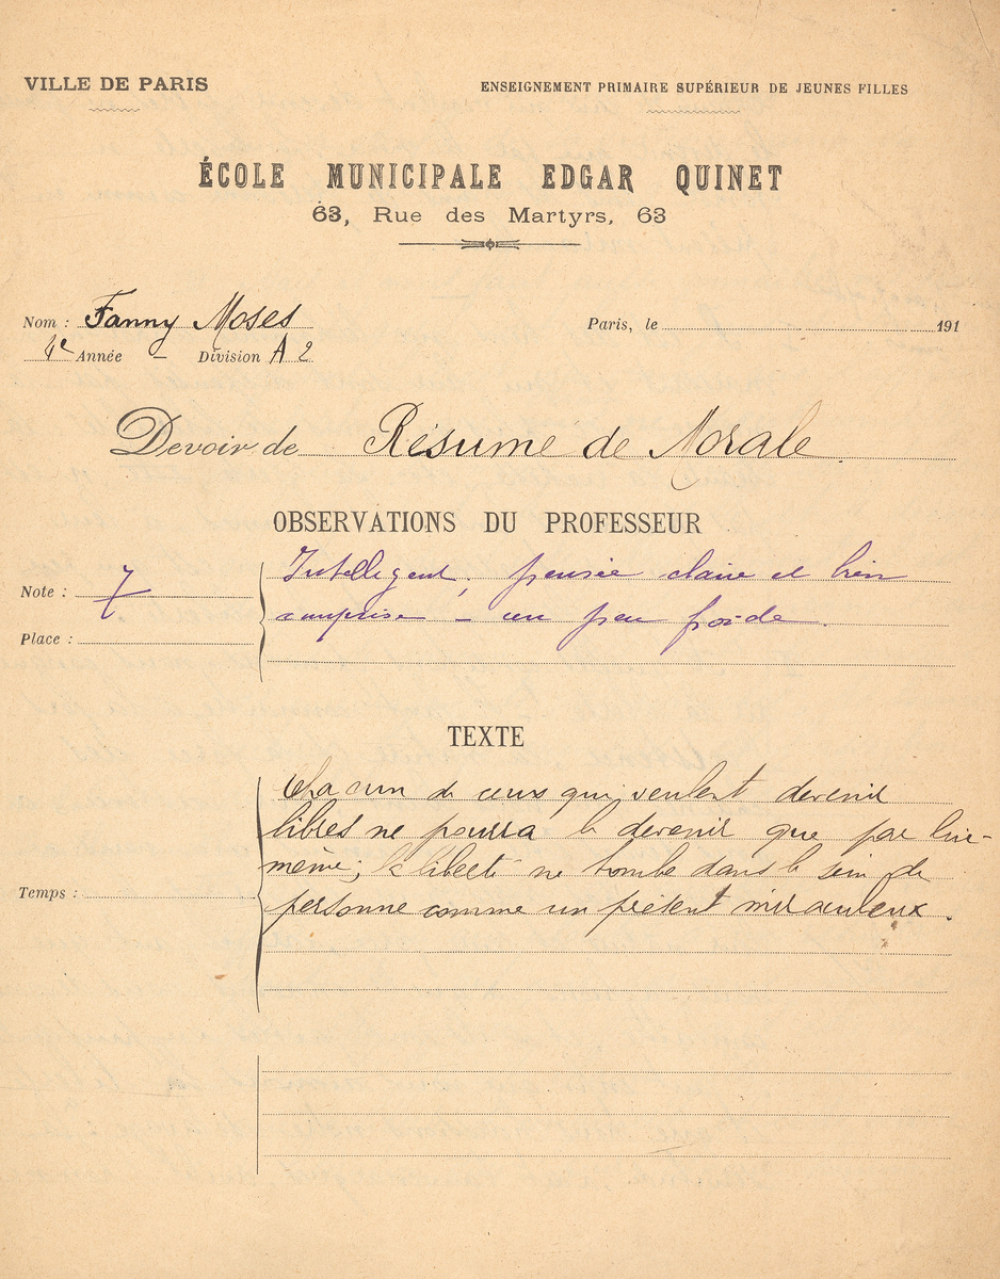 VILLE DE PARIS
ENSEIGNEMENT PRIMAIRE SUPÉRIEUR DE JEUNES FILLES
ÉCOLE MUNICIPALE EDGAR QUINET
63, Rue des Martyrs, 63
Nom : Fanny Moses
Paris, le 191
4e Année – Division A 2
Devoir de Résumé de Morale.
OBSERVATIONS DU PROFESSEUR
Note : 7
Place :
Intelligent ; pensée claire et bien
comprise – un peu froide.
TEXTE
Chacun de ceux qui veulent devenir
libres ne pourra le devenir que par lui-
même ; la liberté ne tombe dans le sein de
personne comme un présent miraculeux.
Temps :